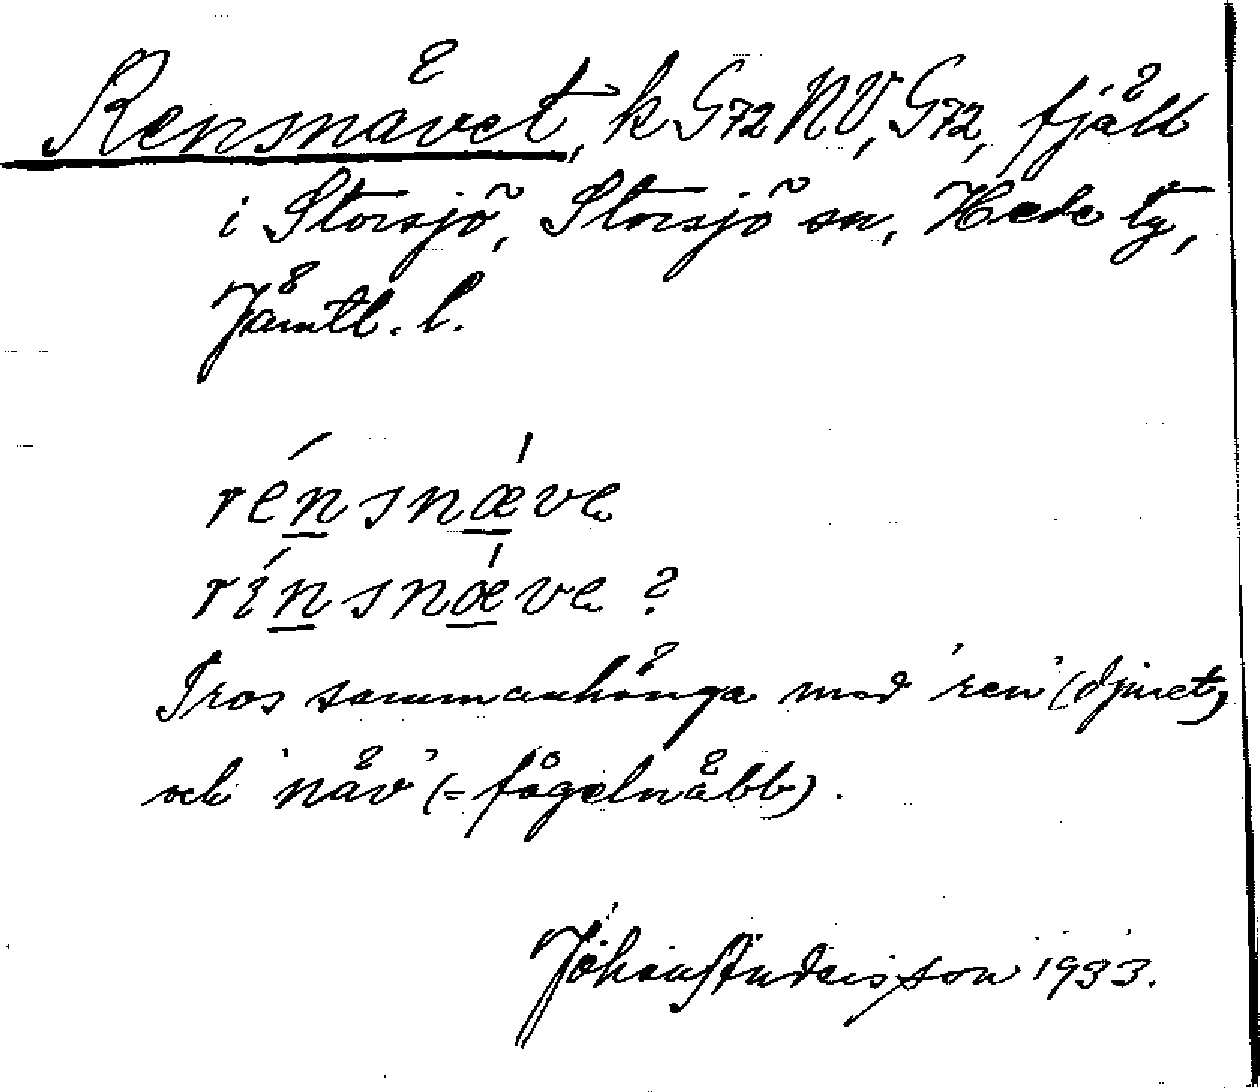 Rensnävet, k G72 NV, G72, fjäll
i Storsjö, Storsjö sn, Hede tg,
Jämtl. l.
rénsnǽve
rínsnǽve ?
Tros sammanhänga med 'ren' (djuret)
och 'näv' (= fågelnäbb).
Johan Andersson 1933.